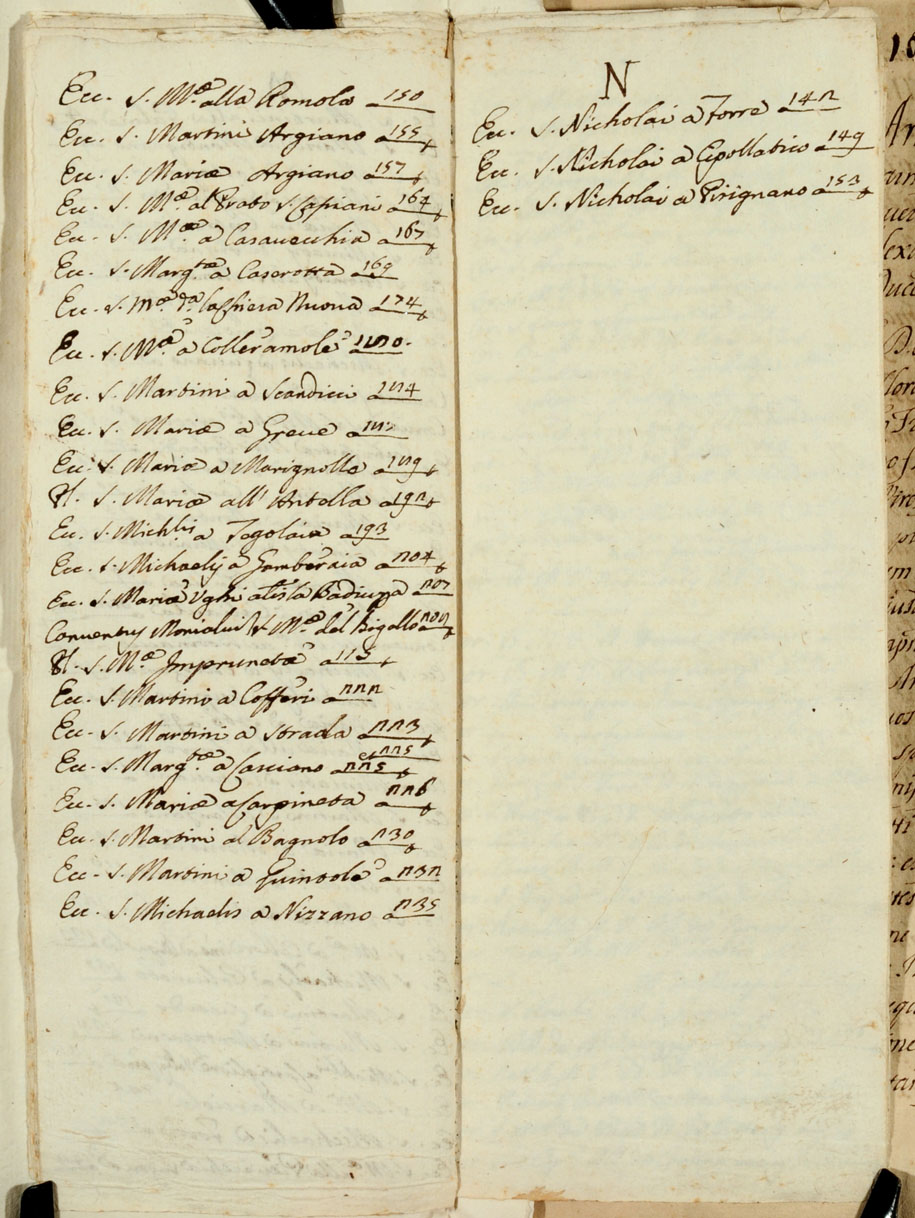 Ecc. S. M.æ alla Romola a 150
Ecc. S. Martini Argiano a 155
Ecc. S. Mariæ Argiano a 157
Ecc. S. M.æ al Prato S. Casciani a 164
Ecc. S. M.æ a Casauecchia a 167
Ecc. S. Marg.tæ a Caserotta a 169
Ecc. S. M.æ Nuova a 174
Ecc. S. M.æ a Colleramole 180
Ecc. S. Martini a Scandicci 184
Ecc. S. Mariæ a Greue a
Ecc. S. Mariæ a Marignolle a 189
Pl. S. Mariæ all' Antella a 192
Ecc. S. Michlis a Tegolaia a 193
Ecc. S. Michaelis a Gamberaia a 204
Ecc. S. Mariæ Ughi la Badiuzza a 207
Conventus Monialiu S. M.æ del Bigallo a 208
Pl. S. M.æ Imprunetæ a
Ecc. S. Martini a Cofferi a 222
Ecc. S. Martini a Strada a 223
et 225
Ecc. S. Marg.tæ a Casciano a 225
Ecc. S. Mariæ a Carpineta a 226
Ecc. S. Martini al Bagnolo a 230
Ecc. S. Martini a Quintole a 232
Ecc. S. Michaelis a Nizzano a 235
N
Ecc. S. Nicholai a Torre a 142
Ecc. S. Nicholai a Cipollatico a 149
Ecc. S. Nicholai a Pisignano a 153